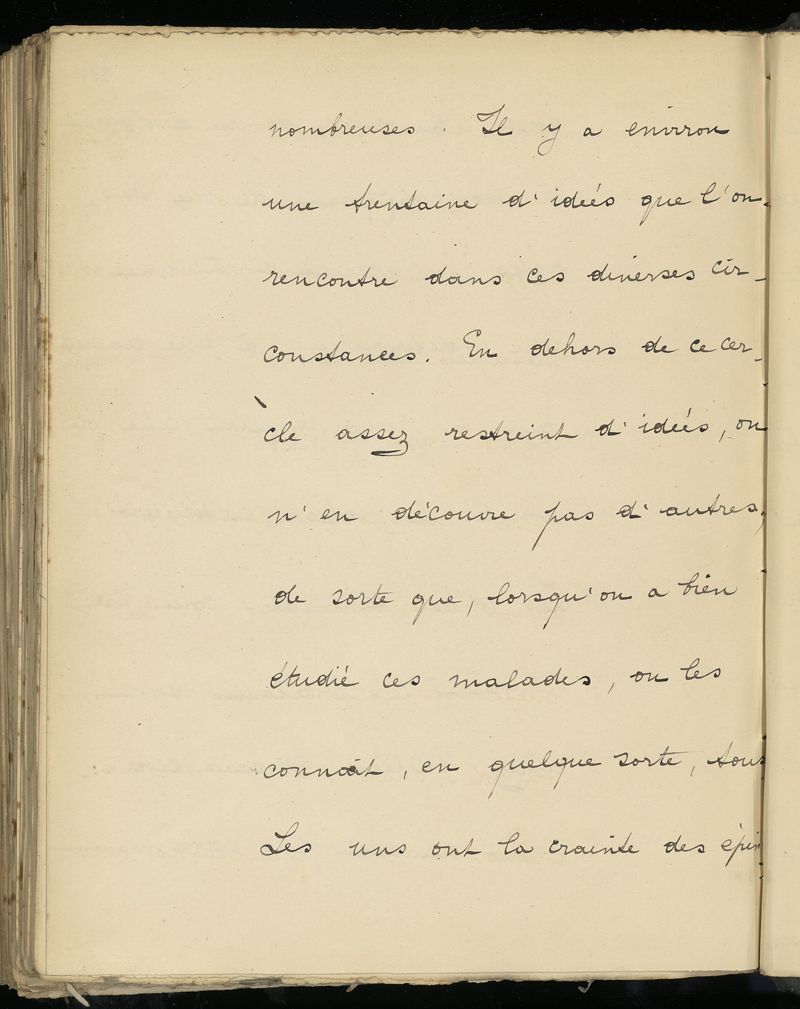 nombreuses. Il y a environ
une trentaine d'idées que l'on
rencontre dans ces diverses cir-
constances. En dehors de ce cer-
cle assez restreint d'idées, on
n'en découvre pas d'autres,
de sorte que, lorsqu'on a bien
étudié ces malades, on les
connaît, en quelque sorte, tous
Les uns ont la crainte des épin